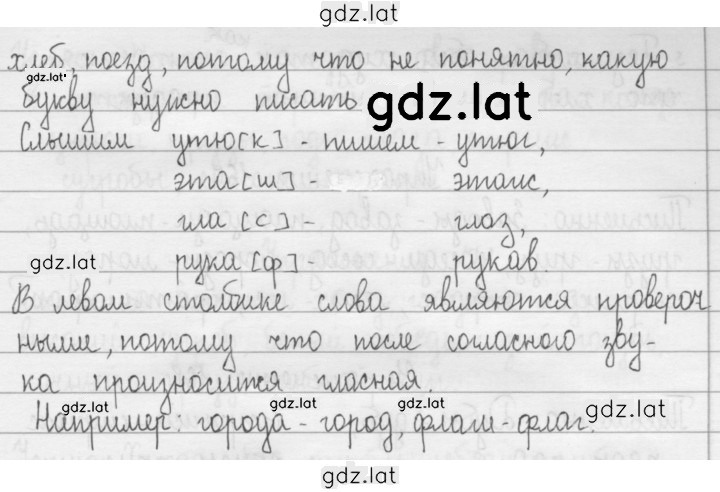 gdz.lat
хлеб, поезд, потому что не понятно, какую
gdz.lat
букву нужно писать
gdz.lat
Слышим утю[к] - пишем - утюг,
эта[ш] - этаж,
гла[с] - глаз,
gdz.lat рука[ф] рукав
В левом столбике слова являются провероч
ными, потому что после согласного зву-
ка произносится гласная.
gdz.lat gdz.lat gdz.lat gdz.lat
Например города - город, флаги - флаг.
gdz.lat